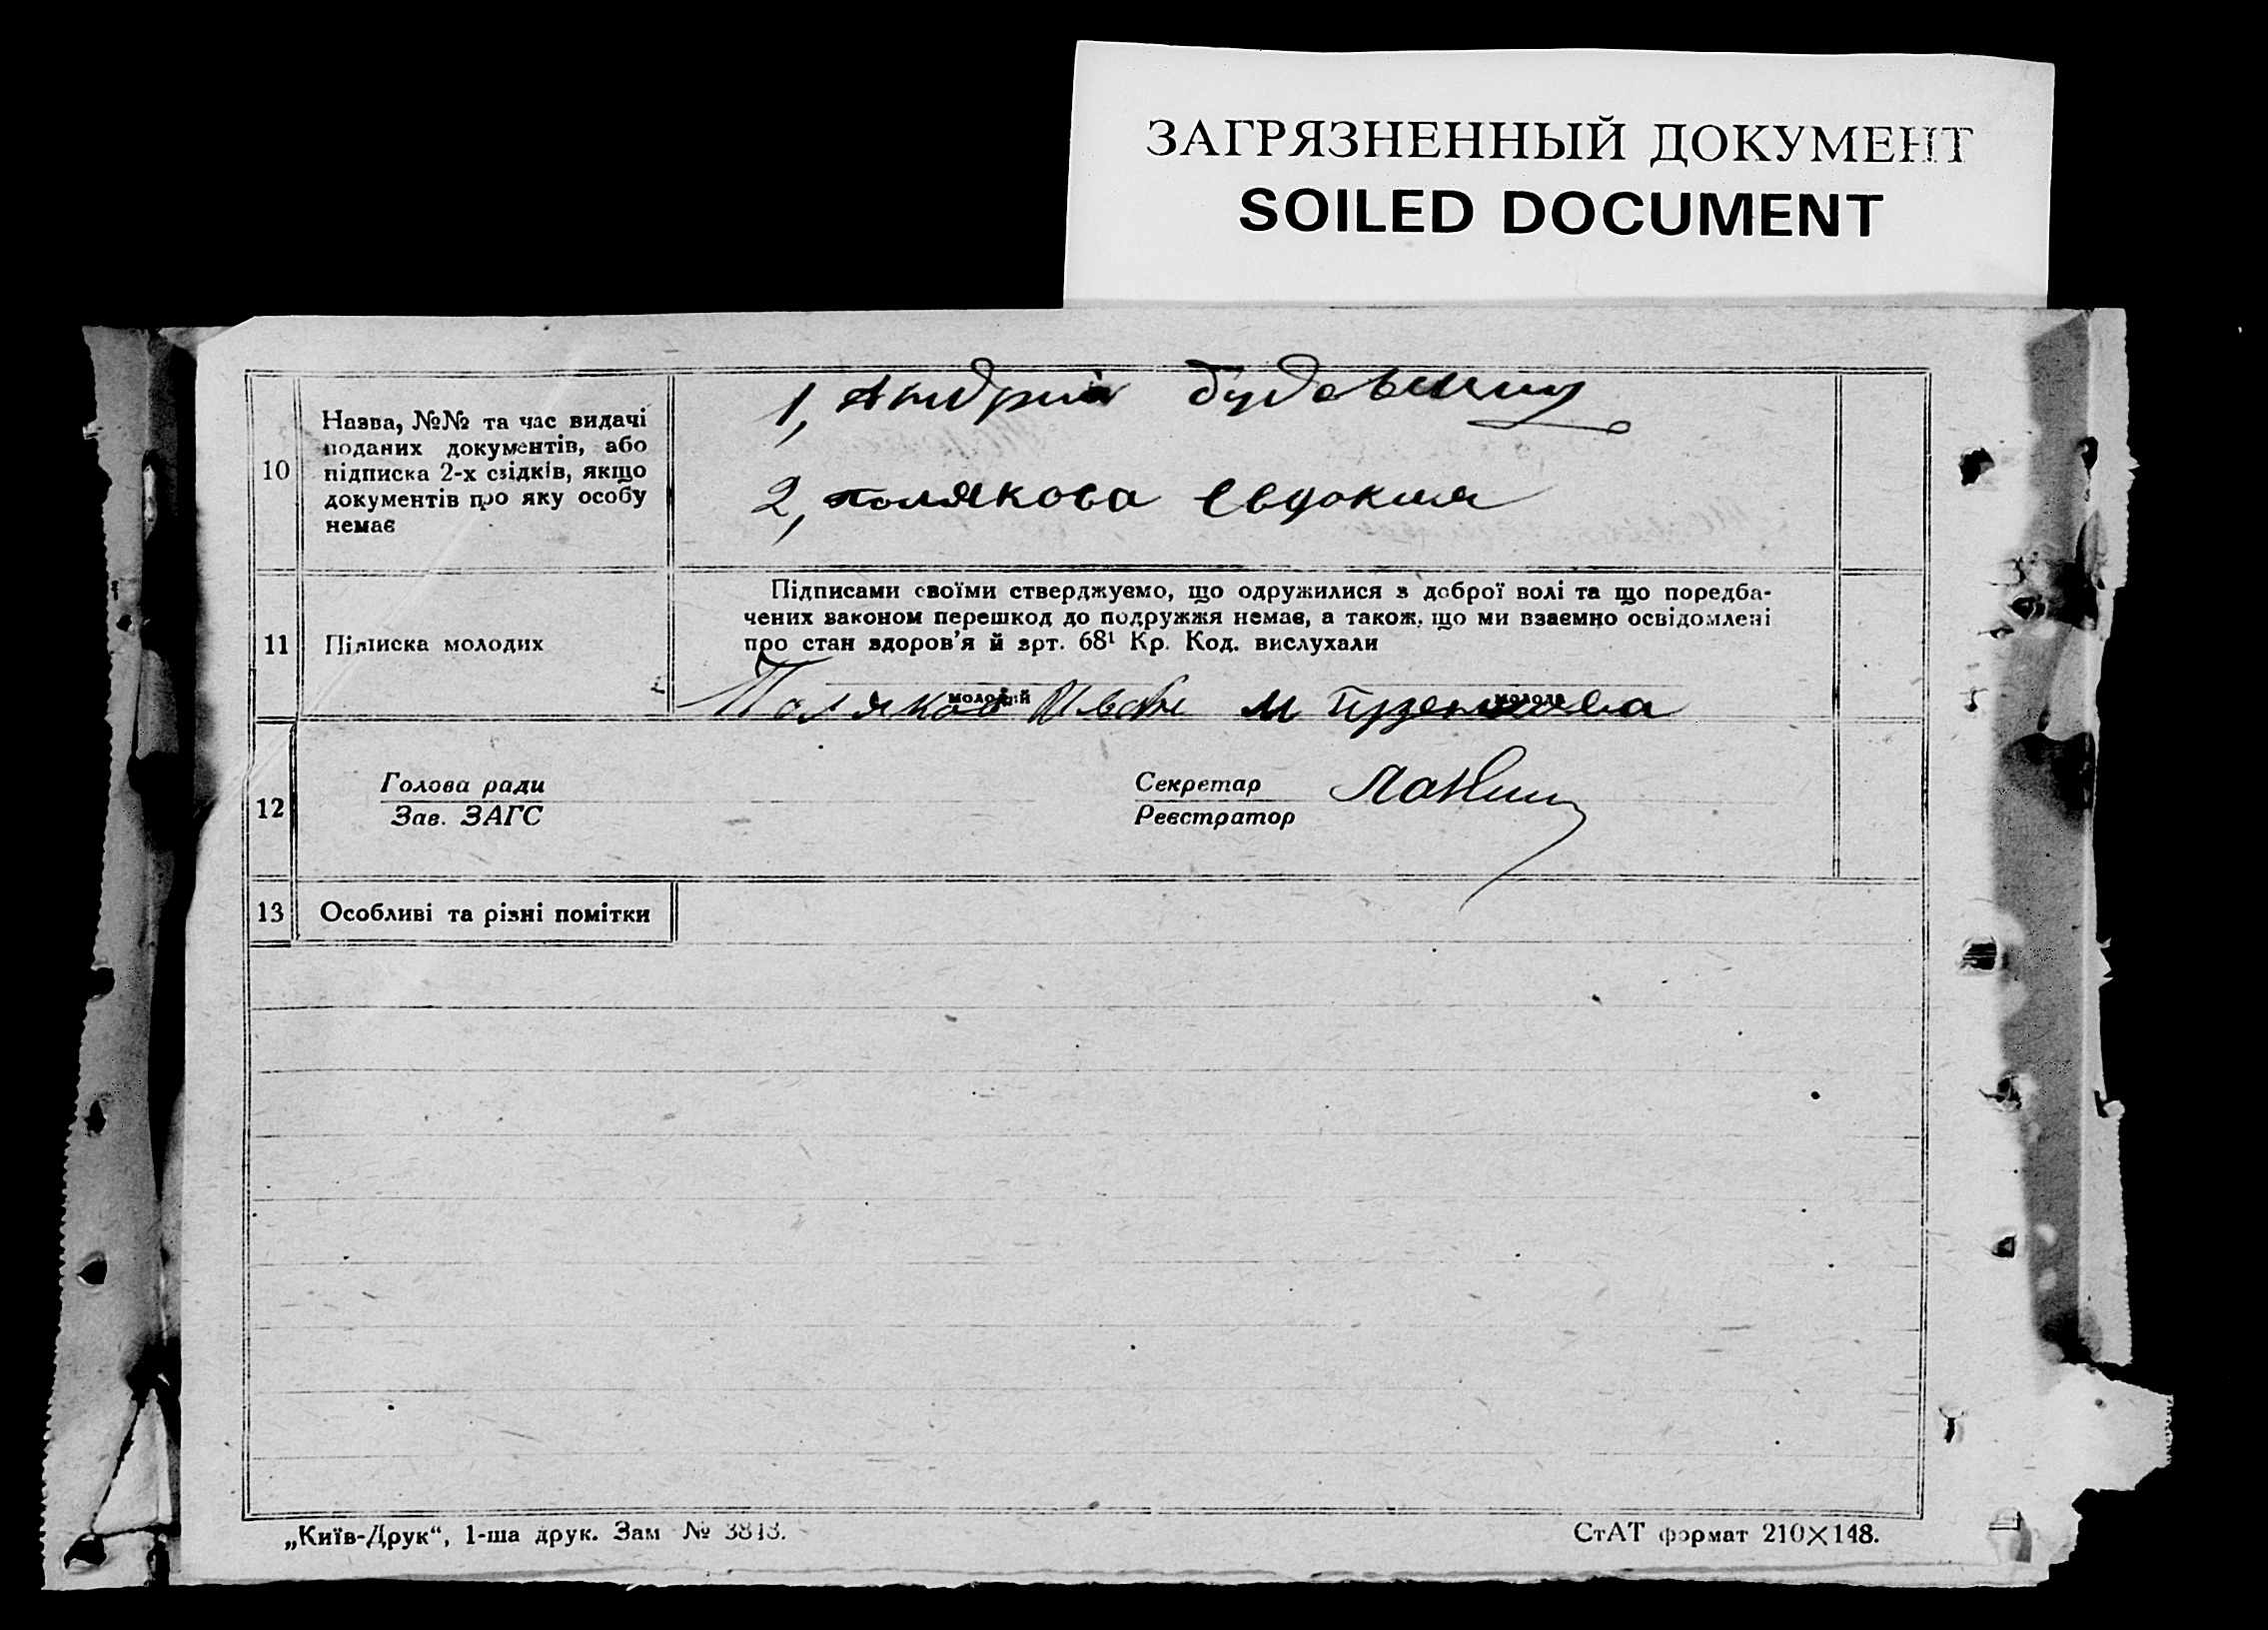 ЗАГРЯЗНЕННЫЙ ДОКУМЕНТ
SOILED DOCUMENT
10
Назва, №№ та час видачі
поданих документів, або
підписка 2-х свідків, якщо
документів про яку особу
немає
1, Андрій
2, Полякова Євдокия
11
Підписка молодих
Підписами своїми стверджуємо, що одружилися з доброї волі та що поредба-
чених законом перешкод до подружжя немає, а також, що ми взаємно освідомлені
про стан здоров’я й арт. 68¹ Кр. Код. вислухали
молодий молода
Поляков Иван М
12
Голова ради
Зав. ЗАГС
Секретар
Реєстратор
13
Особливі та різні помітки
„Київ-Друк“, 1-ша друк. Зам № 3813.
СтАТ формат 210×148.